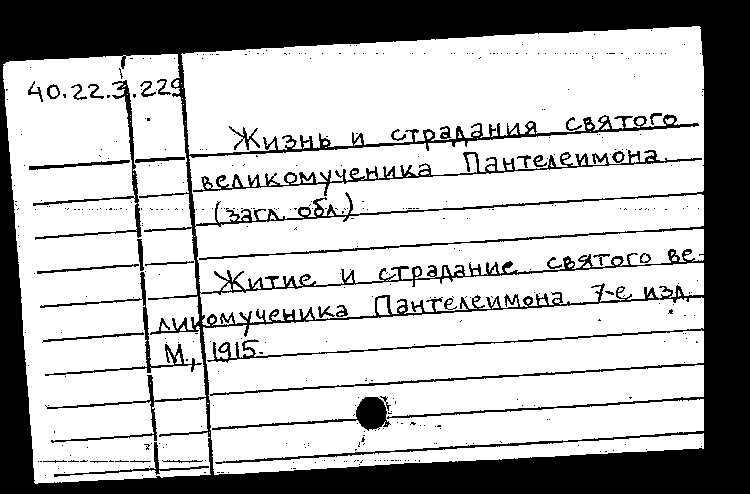 40.22.3.229
Жизнь и страдания святого
великомученика Пантелеимона.
(загл. обл.)
Житие и страдание святого ве-
ликомученика Пантелеимона. 7-е изд.
М., 1915.